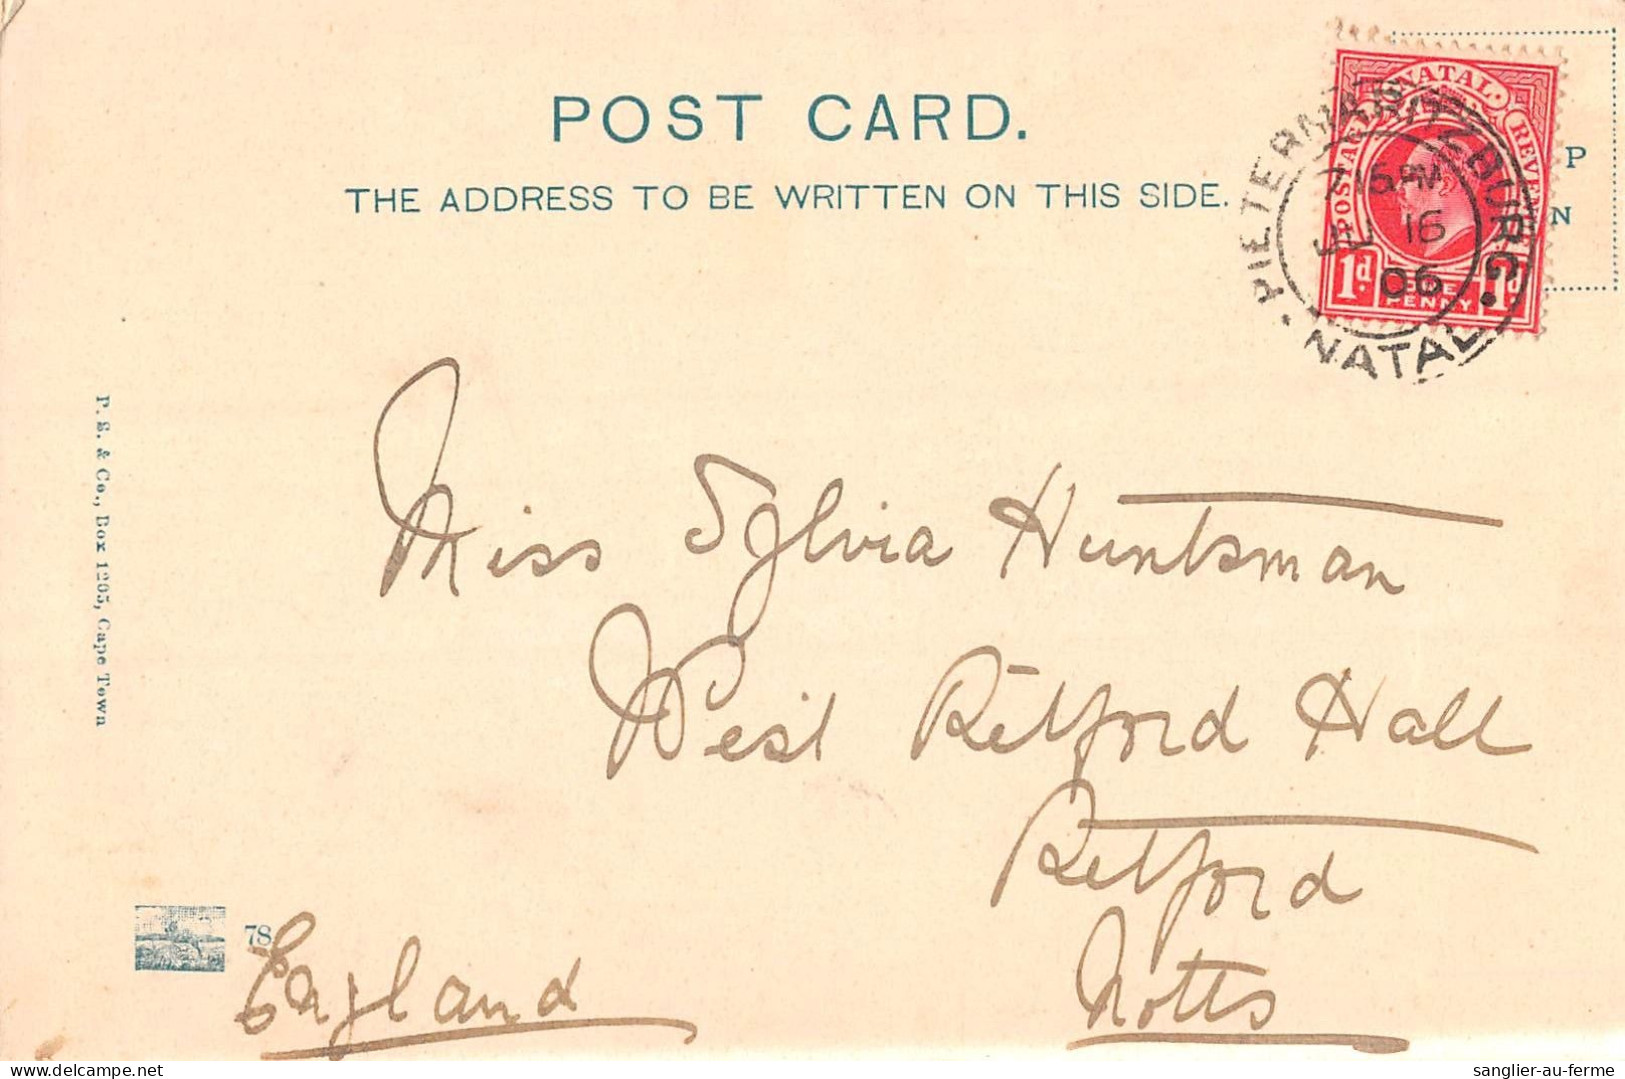 POST CARD.
THE ADDRESS TO BE WRITTEN ON THIS SIDE.
NATAL
POSTAGE REVENUE
1d. 1d
ONE PENNY
PIETERMARITZBURG
5 PM
JL 16
06
NATAL
P
N
P. S. & Co., Box 1205, Cape Town
Miss Sylvia Huntsman
West Retford Hall
Retford
Notts
England
78
sanglier-au-ferme